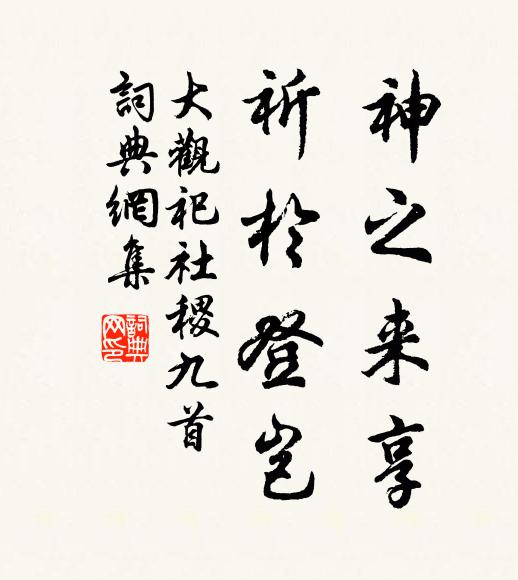 神之来享
祈於登岂
大觀祀社稷九首
詞典網集
詞典网印